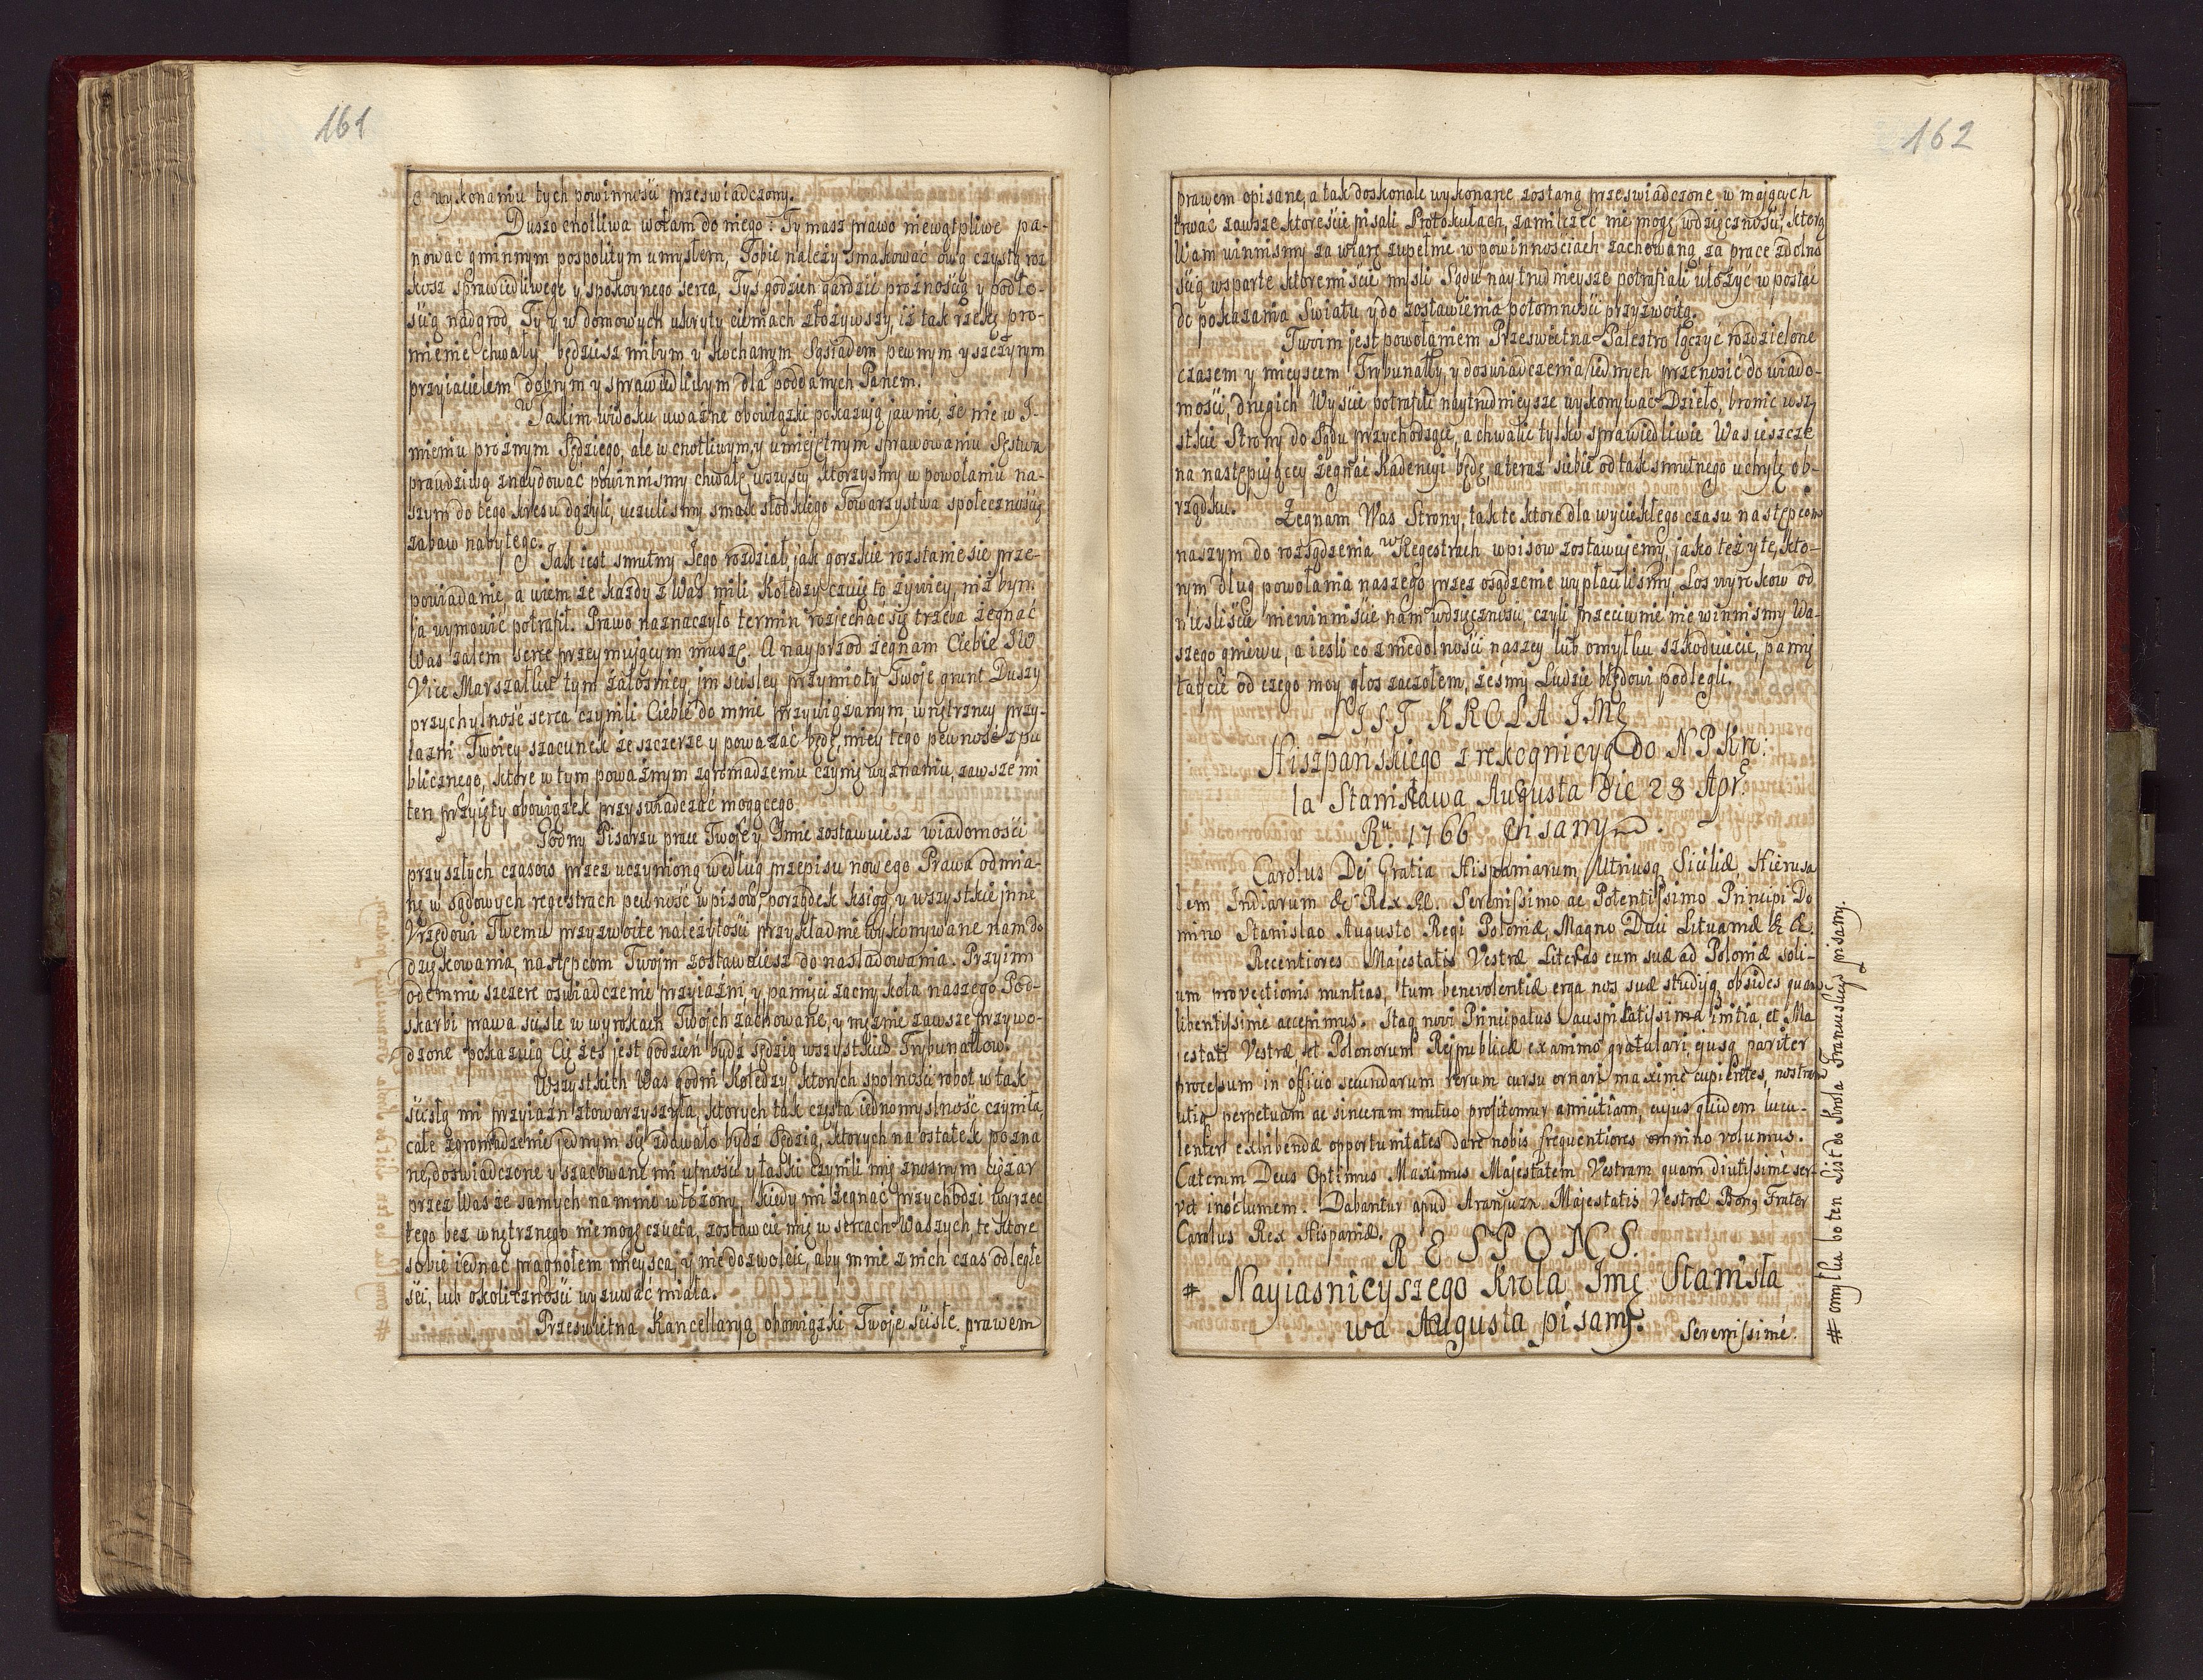 161
o wykonaniu tych powinnosci przeswiadczony.
Duszo cnotliwa wołam do niego: Ty masz prawo niewątpliwe pa-
nować gminnym pospolitym umysłem, Tobie należy smakować ową czystą roz
kosz sprawiedliwego y spokoynego serca, Tyś godzien gardzić proznoscią y podło-
scią nadgrod, Ty y w domowych ukryty cieniach złożywszy, iż tak rzekę pro-
mienie chwały będziesz miłym y kochanym Sąsiadem pewnym y szczyrym
przyiacielem dobrym y sprawiedliwym dla poddanych Panem.
W Takim widoku uważne obowiązki pokazują jawnie, że nie w I-
mieniu prożnym Sędziego, ale w cnotliwym, y umiejętnym sprawowaniu Sęstwa
prawdziwą znaydować powinnismy chwałę wszyscy ktorzysmy w powołaniu na-
szym do tego kresu dążyli, uczulismy smak słodkiego Towarzystwa społecznoscią
zabaw nabytego.
Jak iest smutny Jego rozdział, jak gorzkie rozstanie się prze-
powiadanie, a wiem że każdy z Was mili Koledzy czuię to żywiey, niż bym
ja wymowić potrafił. Prawo naznaczyło termin rozjechać się trzeba żegnać
Was zatem serce przeymującym muszę. A nayprzod żegnam Ciebie JW
Vice Marszałku tym żałosniey, jm scisley przymioty Twoje grunt Duszy
przychylność serca czynili Ciebie do mnie przywiązanym, wnętrzney przy-
iazni Twoiey szacunek że szczerze y poważać będę, miey tego pewność z pu
blicznego, ktore w tym poważnym zgromadzeniu czynię wyznaniu, zawsze mi
ten przyięty obowiązek przyswiadczać mogącego.
Godny Pisarzu prace Twoje y Jmie zostawuiesz wiadomosci
przyszłych czasow przez uczynioną według przepisu nowego Prawa odmia-
nę w sądowych regestrach pewność wpisow, porządek ksiąg, y wszystkie jnne
Vrzędowi Twemu przyzwoite należytosci przykładnie wykonywane nam do
dziękowania, następcom Twoim zostawuiesz do nasladowania. Przyimi
odemnie szczere oswiadczenie przyiazni, y pamięci zacny koła naszego Pod-
skarbi prawa scisle w wyrokach Twoich zachowane, y mężnie zawsze przywo-
dzone pokazuią Cię żeś jest godzien bydź sędzią wszystkich Trybunałow.
Wszystkich Was godni Koledzy, ktorych spolnosci robot w tak
scisłą mi przyiaźń stowarzyszyła, ktorych tak czysta iednomyslność czyniła,
całe zgromadzenie jednym się zdawało bydź Sędzią, ktorych na ostatek pozna
ne, doswiadczone y szacowane mi ufnosci y łaski czynili mię znosnym ciężar
przez Was że samych na mnie włożony, kiedy mi żegnać przychodzi wyrzec
tego bez wnętrznego nie mogę czucia, zostawcie mię w sercach Waszych, te ktore
sobie iednać pragnołem mieysca, y nie dozwolcie, aby mnie z nich czas odległo
sci, lub okolicznosci wyzuwać miała.
Przeswietna Kancellaryą obowiązki Twoje scisle. prawem
162
prawem opisane, a tak doskonale wykonane zostaną przeswiadczone w maiących
trwać zawsze ktorescie pisali Protokułach, zamilczeć nie mogę wdzięcznosci, ktorą
Wam winnismy za wiarę zupełnie w powinnosciach zachowaną, za prace zdolno
scią wsparte ktoremiscie mysli Sądu naytrudnieysze potrafiali ułożyć w postać
do pokazania Swiatu y do zostawienia potomnosci przyzwoitą.
Twoim jest powołaniem Przeswietna Palestro łączyć rozdzielone
czasem y mieyscem Trybunały, y doswiadczenia iednych przenosić do wiado-
mosci, drugich Wyscie potrafili naytrudnieysze wykonywać Dzieło, bronic wszy
stkie Strony do Sądu przychodzące, a chwalić tylko sprawiedliwie Was ieszcze
na następuiącey żegnać Kadencyi będę, a teraz siebie od tak smutnego uchylę ob-
rządku. Żegnam Was Strony, tak te ktore dla wyciekłego czasu następcom
naszym do rozsądzenia w Regestrach wpisow zostawujemy, jako też y te, kto-
rym dług powołania naszego przez osądzenie wypłacilismy, Los wyrokow od
niesliscie niewinniscie nam wdzięcznosci, czyli przeciwnie nie winnismy Wa-
szego gniewu, a iesli co z niedolnosci naszey lub omyłku szkoduiecie, pamię
taycie od czego moy głos zaczołem, żeśmy Ludzie błędowi podlegli.
LIST KROLA JMę
Hiszpańskiego z rekognicyą do N.P. Kr:
la Stanisława Augusta die 28 Apr:
Ru 1766 Pisany.
Carolus Dei Gratia Hispaniarum, Utriusq Siciliæ, Hierusa
lem Indiarum &c Rex &c. Serenissimo ac Potentissimo Principi Do
mino Stanislao Augusto Regi Poloniæ, Magno Duci Lituaniæ &c &c.
Recentiores Majestatis Vestræ Literas cum suæ ad Poloniæ soli-
um provectionis nuntias, tum benevolentiæ erga nos suæ studijq obsides quam
libentissime accepimus. Itaq novi Principatus auspicatissima initia, et Ma
iestati Vestræ, et Polonorum Reipublicæ ex animo gratulari, eiusq pariter
processum in officio secundarum rerum cursu ornari maxime cupientes, nostram
utiq perpetuam ac sinceram mutuo profitemur amicitiam, cujus quidem lucu-
lenter exhibendæ opportunitates dare nobis frequentiores omnino volumus.
Cæterum Deus Optimus Maximus Majestatem Vestram quam diutissime ser-
vet incolumem. Dabantur apud Aranjuzn Majestatis Vestræ Bong Frater
Carolus Rex Hispaniæ.
RESPONS.
# Nayiasnieyszego Krola Jmę Stanisła
wa Augusta pisany.
Serenissime.
# omyłka bo ten List do Krola Francuskiego pisany.